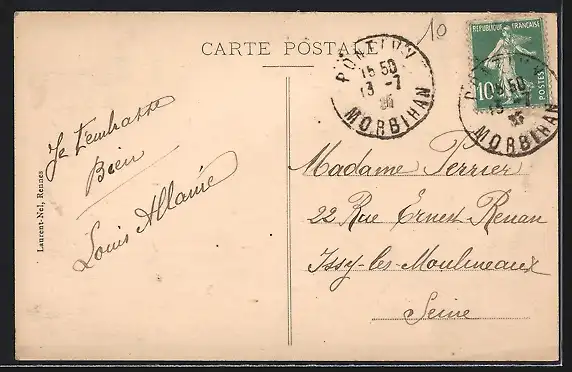 10
CARTE POSTALE
RÉPUBLIQUE FRANÇAISE
10
POSTES
PONTIVY
15 50
13 -7
MORBIHAN
15 50
13 -7
MORBIHAN
Je t'embrasse
Bien
Louis Allaire
Laurent-Nel, Rennes
Madame Perrier
22 Rue Ernest Renan
Issy-les-Moulineaux
Seine